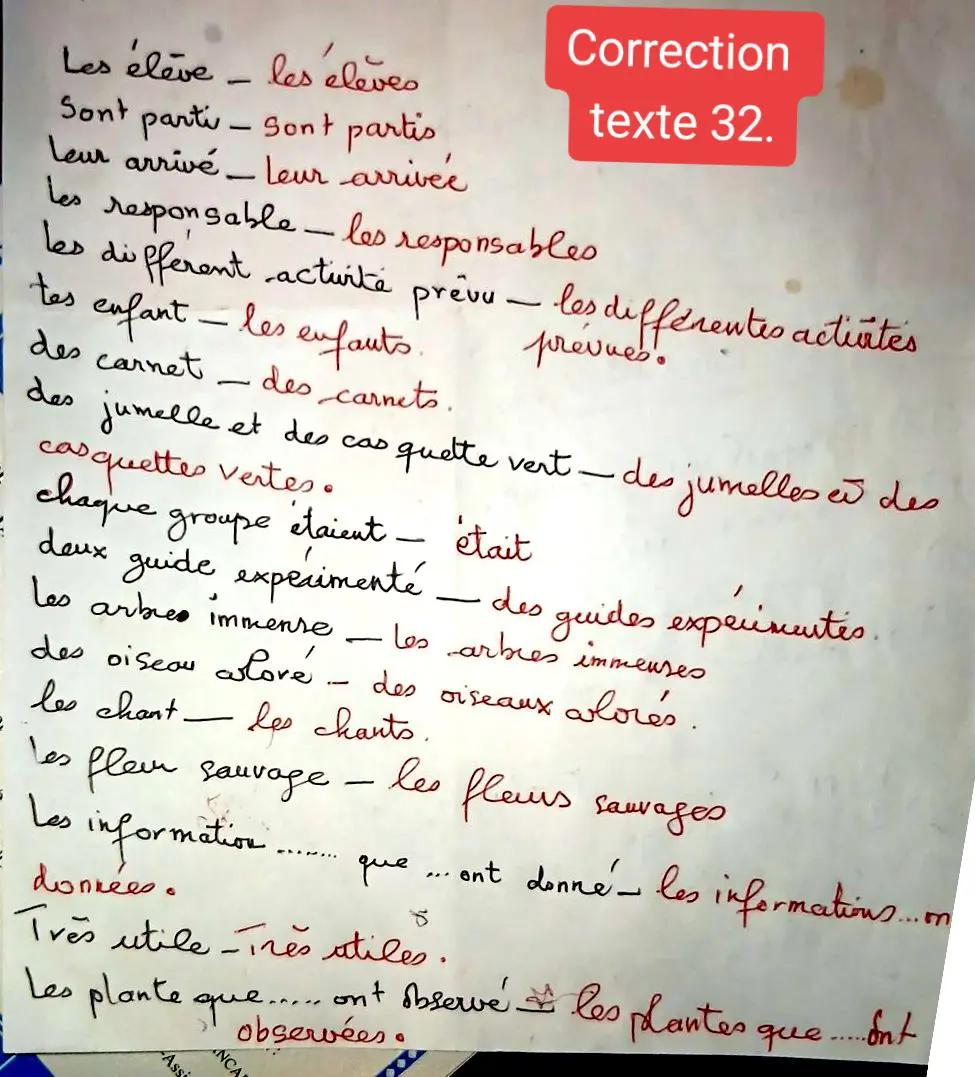 Correction
texte 32.
Les élève – les élèves
Sont parti – Sont partis
leur arrivé – leur arrivée
les responsable – les responsables
les différent activité prévu – les différentes activités
prévues.
les enfant – les enfants.
des carnet – des carnets.
des jumelle et des casquette vert – des jumelles et des
casquettes vertes.
chaque groupe étaient – était
deux guide expérimenté – des guides expérimentés.
Les arbres immense – Les arbres immenses
des oiseau coloré – des oiseaux colorés.
les chant – les chants.
les fleur sauvage – les fleurs sauvages
Les information ........ que ... ont donné – les informations...on
données.
Très utile – Très utiles.
Les plante que...... ont observé – les plantes que .....ont
observées.
NCA
-Assi